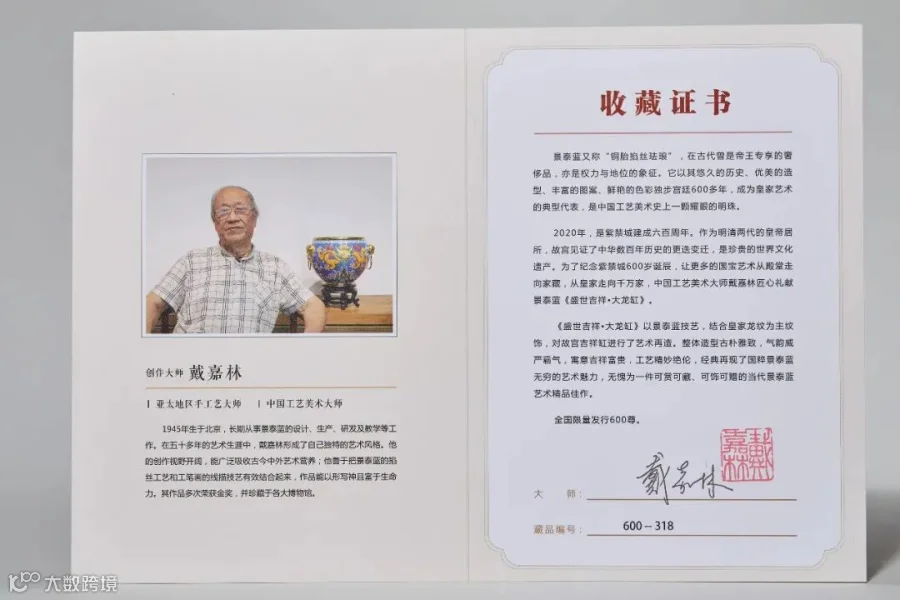 创作大师 戴嘉林
亚太地区手工艺大师 中国工艺美术大师
1945年生于北京，长期从事景泰蓝的设计、生产、研发及教学等工
作。在五十多年的艺术生涯中，戴嘉林形成了自己独特的艺术风格。他
的创作视野开阔，能广泛吸收古今中外艺术营养；他善于把景泰蓝的掐
丝工艺和工笔画的线描技艺有效结合起来，作品能以形写神且富于生命
力。其作品多次荣获金奖，并珍藏于各大博物馆。
收藏证书
景泰蓝又称“铜胎掐丝珐琅”，在古代曾是帝王专享的奢
侈品，亦是权力与地位的象征。它以其悠久的历史、优美的造
型、丰富的图案、鲜艳的色彩独步宫廷600多年，成为皇家艺术
的典型代表，是中国工艺美术史上一颗耀眼的明珠。
2020年，是紫禁城建成六百周年。作为明清两代的皇帝居
所，故宫见证了中华数百年历史的更迭变迁，是珍贵的世界文化
遗产。为了纪念紫禁城600岁诞辰，让更多的国宝艺术从殿堂走
向家藏，从皇家走向千万家，中国工艺美术大师戴嘉林匠心礼献
景泰蓝《盛世吉祥•大龙缸》。
《盛世吉祥•大龙缸》以景泰蓝技艺，结合皇家龙纹为主纹
饰，对故宫吉祥缸进行了艺术再造。整体造型古朴雅致，气韵威
严霸气，寓意吉祥富贵，工艺精妙绝伦，经典再现了国粹景泰蓝
无穷的艺术魅力，无愧为一件可赏可藏、可饰可赠的当代景泰蓝
艺术精品佳作。
全国限量发行600尊。
大 师：戴嘉林
戴嘉林
藏品编号：600--318
大数跨境